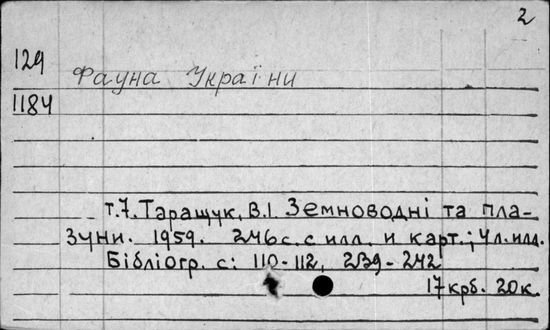 2
129
Фауна України
1184
т.7. Таращук, В.І. Земноводні та пла-
зуни. 1959. 246 с. с илл. и карт.; 4 л. илл.
Бібліогр. с: 110-112, 239-242
17 крб. 20 к.